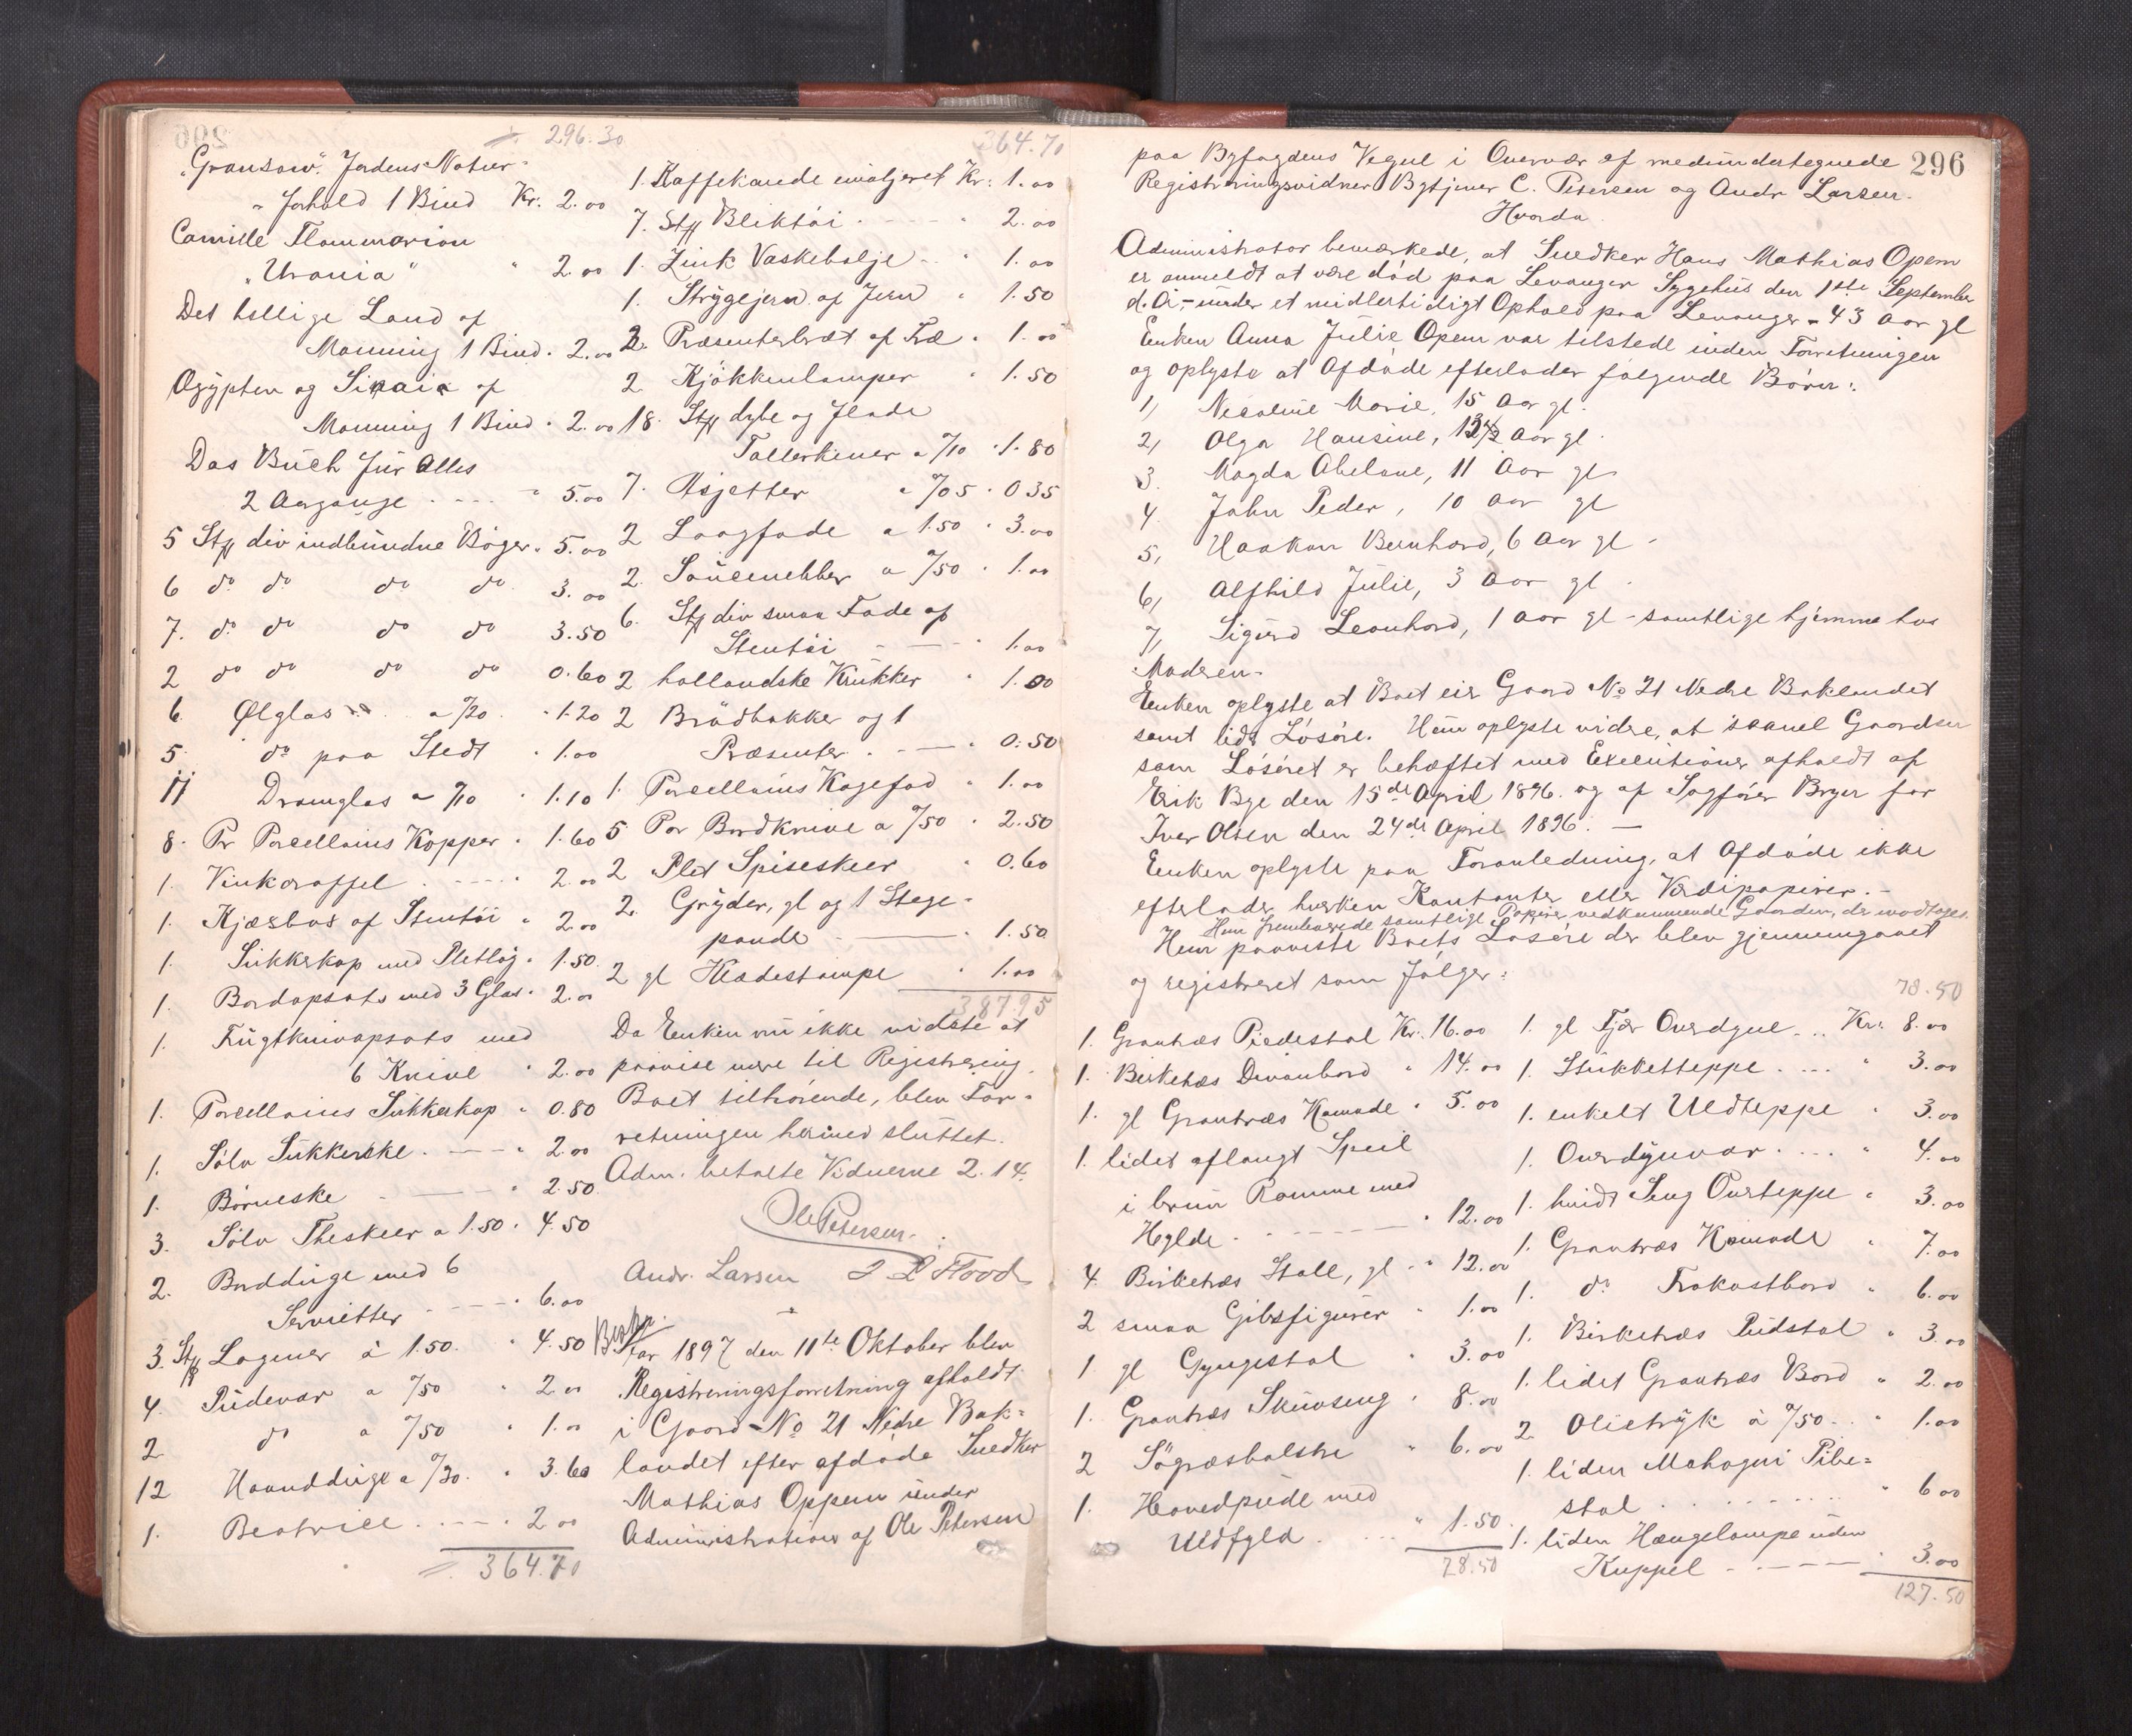 296.30
"Gransow". Jordens Natur-
" forhold 1 Bind Kr. 2.00
Camille Flammarion
"Urania" " 2.00
Det hellige Land af
Manning 1 Bind " 2.00
Ægypten og Sinaia af
Manning 1 Bind " 2.00
Das Buch für Alles
2 Aargange " 5.00
5 Stk div indbundne Böger " 5.00
6 do do do do 3.00
7. do do do do 3.50
2 do do do do 0.60
6 Ølglas a %20 " 1.20
5 do paa Stedt " 1.00
11 Dramglas a %10 " 1.10
8. Pr Porcellains Kopper " 1.60
1. Vinkaraffel " 2.00
1. Kjæsbox af Stentöi " 2.00
1. Sukkerkop med Pletlog " 1.50
1. Bordopsats med 3 Glas " 2.00
1. Frugtknivopsats med
6 Knive " 2.00
1. Porcellains Sukkerkop " 0.80
1. Sölv Sukkerske " 2.00
1. Börneske " 2.50
3. Sölv Theskeer a 1.50 " 4.50
2. Bordduge med 6
Servietter " 6.00
3. Stk Lagener à 1.50 " 4.50
4. Pudevar a %50 " 2.00
2 do a %50 " 1.00
12 Haandduge a %30 " 3.60
1. Beatrice " 2.00
364.70
364.70
1. Kaffekande emaljeret Kr. 1.00
7. Stk Bliktöi " 2.00
1. Zink Vaskebalje " 1.00
1. Strygejern af Jern " 1.50
2. Præsenterbræt af Træ " 1.00
2 Kjökkenlamper " 1.50
18. Stk dybe og flade
Tallerkener a %10 " 1.80
7. Asjetter a %05 " 0 35
2 Laagfade a 1.50 " 3.00
2. Saucenebber a %50 " 1.00
6. Stk div smaa Fade af
Stentöi 1.00
2 hollandske Krukker " 1.00
2 Brödbakker og 1
Præsenter " 0.50
1. Porcellains Kagefad " 1.00
5 Par Bordknive a %50 " 2.50
2 Plet Spiseskeer " 0.60
2. Gryder, gl og 1 Stege-
pande " 1.50
2 gl Kladestampe " 1.00
387.95
Da Enken nu ikke vidste at
paavise mere til Registrering
Boet tilhörende, blev For-
retningen hermed sluttet.
Adm. betalte Vidnerne 2.14.
Ole Petersen.
Andr. Larsen
Flood
Aar 1897 den 11te Oktober blev
Registreringsforretning afholdt
i Gaard No 21 Nedre Bak-
landet efter afdöde Snedker
Mathias Oppem under
Administration af Ole Petersen
296
paa Byfogdens Vegne i Overvær af medundertegnede
Registreringsvidner Bytjener C. Petersen og Andr Larsen.
Hvorda
Administrator bemærkede, at Snedker Hans Mathias Opem
er anmeldt at være död paa Levanger Sygehus den 1ste September
d. A. - under et midlertidigt Ophold paa Levanger - 43 Aar gl
Enken Anna Julie Opem var tilstede under Forretningen
og oplyste at Afdöde efterlader fölgende Börn:
1, Nicoline Marie, 15 Aar gl.
2, Olga Hansine, 13½ Aar gl.
3. Magda Abelone, 11 Aar gl
4 John Peder, 10 Aar gl
5, Haakon Bernhard, 6 Aar gl -
6, Alfhild Julie, 3 Aar gl -
7, Sigurd Leonhard, 1 Aar gl - samtlige hjemme hos
Moderen -
Enken oplyste at Boet eier Gaard No 21 Nedre Baklandet
samt lidt Lösöre. Hun oplyste videre, at saavel Gaarden
som Löséret er behæftet med Executioner afholdt af
Erik Bye den 15de April 1896. og af Sagförer Bryn for
Iver Olsen den 24de April 1896. -
Enken oplyste paa Foranledning, at Afdöde ikke
efterlader hverken Kontanter eller Værdipapirer. -
Hun fremleverede samtlige Papirer vedkommende Gaarden, der modtoges.
Hun paaviste Boets Lösöre der blev gjennemgaaet
og registreret som fölger:
1. Grantræs Piedestal Kr. 16.00
1. Birketræs Divanbord " 14.00
1. gl Grantræs Komode " 5.00
1. lidet aflangt Speil
i brun Ramme med
Hylde " 12.00
4 Birketræs Stole, gl " 12.00
2 smaa Gibsfigurer " 1.00
1 gl Gyngestol " 3.00
1. Grantræs Skuvseng " 8.00
2 Sögræsbolstre " 6.00
1. Hovedpude med
Uldfyld " 1.50
78.50
78.50
1. gl Fjær Overdyne Kr. 8.00
1. Stukketteppe " 3.00
1. enkelt Uldteppe " 3.00
1. Overdynvar " 4.00
1. hvidt Seng Overteppe " 3.00
1. Grantræs Komode " 7.00
1. do Frokostbord " 6.00
1. Birketræs Pidstal " 3.00
1. lidet Grantræs Bord " 2.00
2 Olietryk à %50 " 1.00
1. liden Mahogni Pibe-
stol " 6 00
1. liden Hængelampe uden
Kuppel " 3.00
127.50